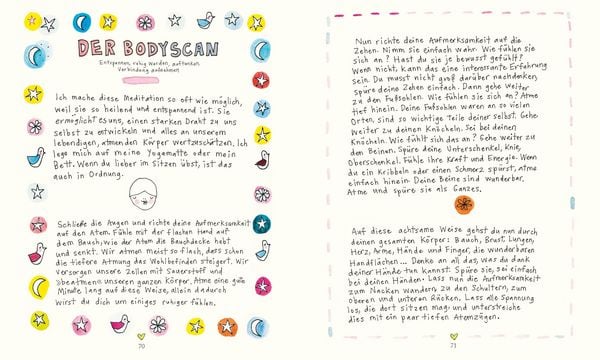 DER BODYSCAN
Entspannen, ruhig werden, auftanken,
Verbindung aufnehmen
Ich mache diese Meditation so oft wie möglich,
weil sie so heilend und entspannend ist. Sie
ermöglicht es uns, einen starken Draht zu uns
selbst zu entwickeln und alles an unserem
lebendigen, atmenden Körper wertzuschätzen. Ich
lege mich auf meine Yogamatte oder mein
Bett. Wenn du lieber im Sitzen übst, ist das
auch in Ordnung.
Schließe die Augen und richte deine Aufmerksamkeit
auf den Atem. Fühle mit der flachen Hand auf
dem Bauch, wie der Atem die Bauchdecke hebt
und senkt. Wir atmen meist so flach, dass schon
die tiefere Atmung das Wohlbefinden steigert. Wir
versorgen unsere Zellen mit Sauerstoff und
beatmen unseren ganzen Körper. Atme eine gute
Minute lang auf diese Weise, allein dadurch
wirst du dich um einiges ruhiger fühlen.
70
Nun richte deine Aufmerksamkeit auf die
Zehen. Nimm sie einfach wahr. Wie fühlen sie
sich an? Hast du sie je bewusst gefühlt?
Wenn nicht, kann das eine interessante Erfahrung
sein. Du musst nicht groß darüber nachdenken,
spüre deine Zehen einfach. Dann gehe weiter
zu den Fußsohlen. Wie fühlen sie sich an? Atme
tief hinein. Deine Fußsohlen waren an so vielen
Orten, sind so wichtige Teile deiner selbst. Gehe
weiter zu deinen Knöcheln. Sei bei deinen
Knöcheln. Wie fühlt sich das an? Gehe weiter zu
den Beinen. Spüre deine Unterschenkel, Knie,
Oberschenkel. Fühle ihre Kraft und Energie. Wenn
du ein Kribbeln oder einen Schmerz spürst, atme
einfach hinein. Deine Beine sind wunderbar.
Atme und spüre sie als Ganzes.
Auf diese achtsame Weise gehst du nun durch
deinen gesamten Körper: Bauch, Brust, Lungen,
Herz, Arme, Hände und Finger, die wunderbaren
Handflächen... Denke an all das, was du dank
deiner Hände tun kannst. Spüre sie, sei einfach
bei deinen Händen. Lass nun die Aufmerksamkeit
zum Nacken wandern, zu den Schultern, zum
oberen und unteren Rücken. Lass alle Spannung
los, die dort sitzen mag, und unterstreiche
dies mit ein paar tiefen Atemzügen.
71